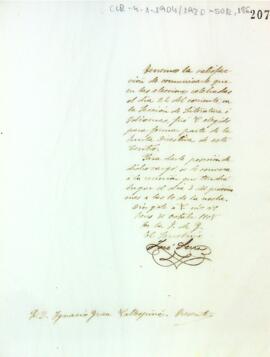 CLR-4-1-1904/1920-SOR, 186
207
Tenemos la satisfac-
ción de comunicarle que
en las elecciones celebradas
el día 26 del corriente, en
la Sección de Literatura é
Idiomas, fué V. elegido
para formar parte de la
Junta Directiva de este
Centro.
Para darle posesión de
dicho cargo, se le convoca
á la reunión que tendrá
lugar el día 3 del próximo
mes á las 10 de la noche.
Dios gde á V. m. a.
31 Octubre
P. A. de la J. de G.
El Secretario
José
Sr. D. Ignacio Presente